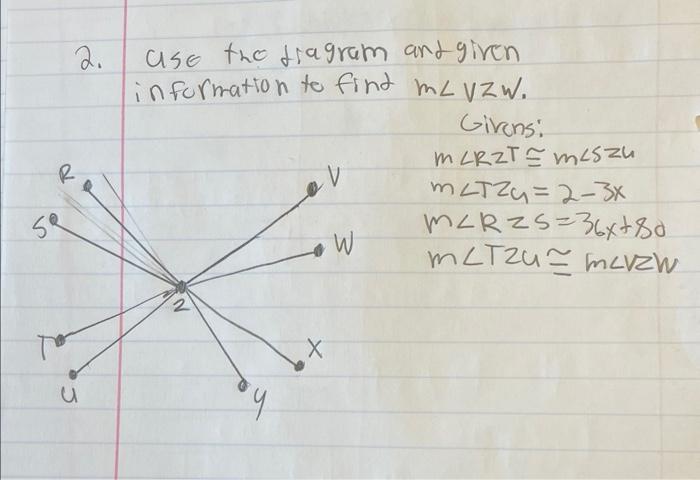 2. use the diagram and given
information to find m∠VZW.
Givens:
m∠RZT ≅ m∠SZU
m∠TZU = 2-3x
m∠RZS = 36x+80
m∠TZU ≅ m∠VZW
R
V
S
W
Z
T
X
U
Y